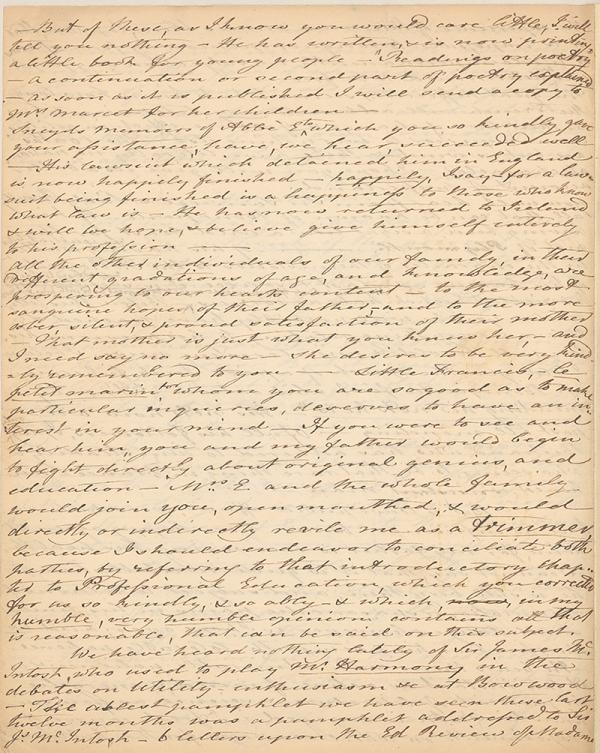 —But of these, as I know you would care little, I will
tell you nothing — He has written, & is now printing
a little book for young people — "Readings on poetry
— a continuation or second part of poetry explained
— as soon as it is published I will send a copy to
Mrs Marcet for her children —
Sneyds memoirs of Abbé E. to which you so kindly gave
your assistance, have, we hear, succeeded well —
— His lawsuit which detained him in England
is now happily finished — happily, I say — for a law-
suit being finished is a happiness to those who know
what law is — He has now returned to Ireland
& will we hope, & believe give himself entirely
to his profession —
All the other individuals of our family, in their
different gradations of age, and knowledge, are
prospering to our hearts content — to the most
sanguine hopes of their father, and to the more
sober, silent, & proud satisfaction of their mother
— That mother is just what you knew her, — and
I need say no more — She desires to be very kind
=ly remembered to you — Little Francis, — le
petit marin for whom you are so good as to make
particular inquiries, deserves to have an in
terest in your mind — If you were to see and
hear him, you and my father would begin
to fight directly about original genius, and
education — Mrs E and the whole family
would join you, open mouthed, & would
directly or indirectly revile me as a trimmer,
because I should endeavor to conciliate both
parties, by referring to that introductory chap=
ter to Professional Education, which you corrected
for us so kindly, & so ably — & which, now, in my
humble, very humble opinion contains all that
is reasonable, that can be said on this subject.
We have heard nothing lately of Sir James Mc
Intosh, who used to play Mr Harmony in the
debates on Utility — enthusiasm &c at Bowwood
— The ablest pamphlet we have seen these last
twelve months was a pamphlet addressed to Sir
Js Mc Intosh — 6 letters upon the Ed Review of Madame